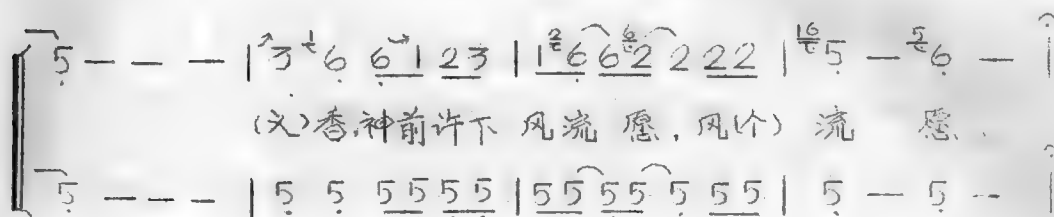 5 — — — | 3 6 6 1 2 3 | 1 6 6 2 2 2 2 | 5 — 6 —
(义)香,神前许下 风流 愿,风(个) 流 愿.
5 — — — | 5 5 5 5 5 5 | 5 5 5 5 5 5 5 | 5 — 5 — —